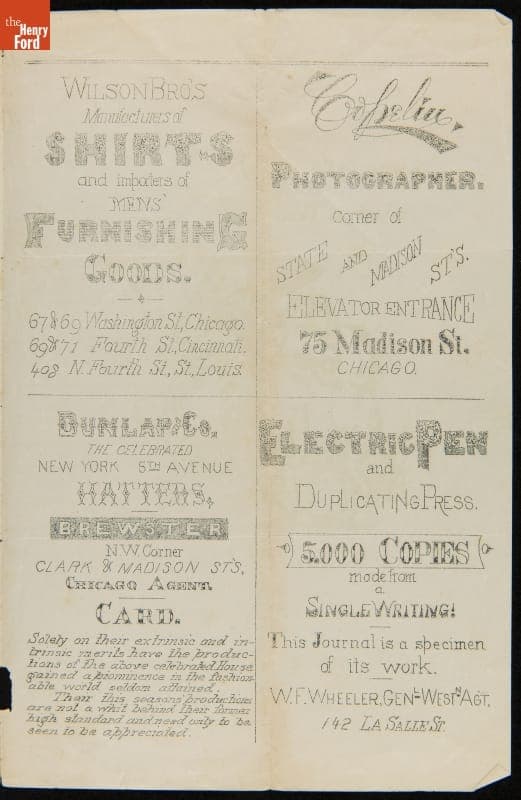 the
Henry
Ford
WILSON BRO'S
Manufacturers of
SHIRTS
and importers of
MENS'
FURNISHING
GOODS.
67 & 69 Washington St, Chicago.
69 & 71 Fourth St, Cincinnati.
408 N. Fourth St, St, Louis.
DUNLAP & Co,
THE CELEBRATED
NEW YORK 5TH AVENUE
HATTERS,
BREWSTER
N.W. Corner
CLARK & MADISON ST'S,
CHICAGO AGENT.
CARD.
Solely on their extrinsic and in-
trinsic merits have the produc-
tions of the above celebrated House
gained a prominence in the fashion-
able world seldom attained.
Their this seasons' productions
are not a whit behind their former
high standard and need only to be
seen to be appreciated.
Copelin,
PHOTOGRAPHER.
Corner of
STATE AND MADISON ST'S.
ELEVATOR ENTRANCE
75 Madison St.
CHICAGO.
ELECTRIC PEN
and
DUPLICATING PRESS.
5.000 COPIES
made from
a
SINGLE WRITING!
This Journal is a specimen
of its work.
W. F. WHEELER, GENL WESTN AGT,
142 LA SALLE ST.